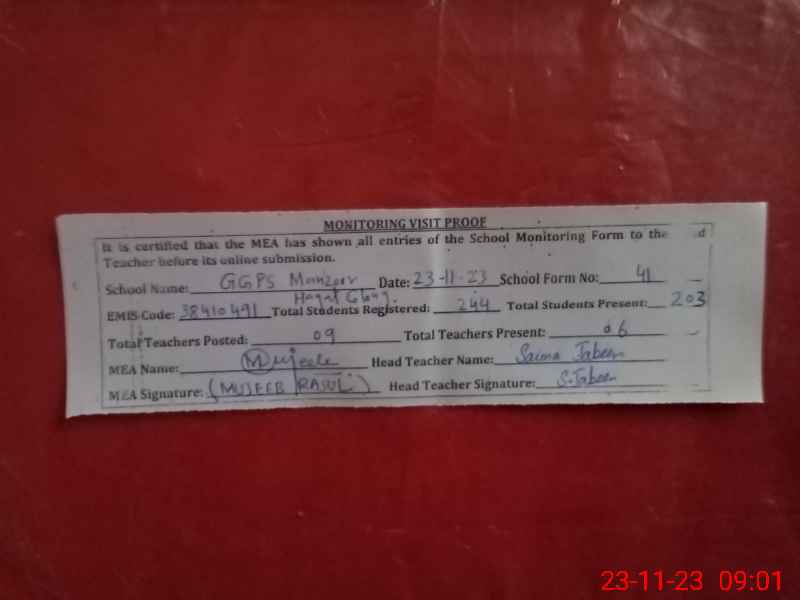 MONITORING VISIT PROOF
It is certified that the MEA has shown all entries of the School Monitoring Form to the d
Teacher before its online submission.
School Name: GGPS Manzoor Date: 23-11-23 School Form No: 41
Hayat
EMIS Code: 38410491 Total Students Registered: 244 Total Students Present: 203
Total Teachers Posted: 09 Total Teachers Present: 06
MEA Name: Mujeeb Head Teacher Name: Saima Jabeen
MEA Signature: (MUJEEB RASUL) Head Teacher Signature: S.Jabeen
23-11-23 09:01